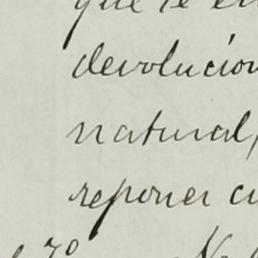 que se en
devolución
natural,
reponer cu
7º